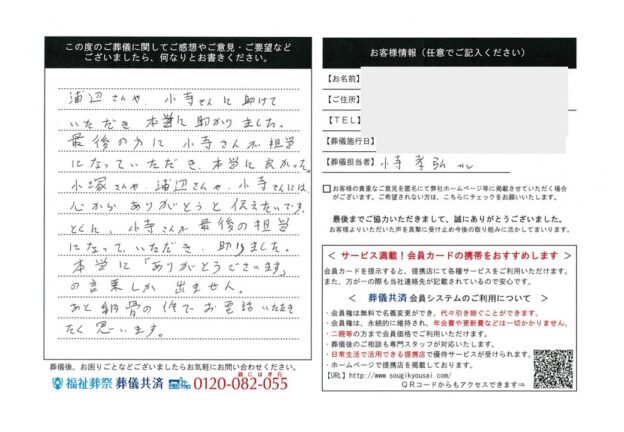 この度のご葬儀に関してご感想やご意見・ご要望など
ございましたら、何なりとお書きください。
浦辺さんや、小寺さんに助けて
いただき本当に助かりました。
最後の方に小寺さんが担当
になっていただき、本当に良かった。
小塚さんや、浦辺さんや、小寺さんには、
心からありがとうと伝えたいです。
とくに、小寺さんが最後の担当
になって、いただき、助りました。
本当に「ありがとうございます」
の言葉しか出ません。
あと納骨の件でお電話いただき
たく思います。
葬儀後、お困りごとなどございましたらお気軽にお問い合わせください。
福祉葬祭 葬儀共済 0120-082-055
お客様情報（任意でご記入ください）
【お名前】
【ご住所】
【TEL】
【葬儀施行日】
【葬儀担当者】小寺 孝弘
お客様の貴重なご意見を匿名にて弊社ホームページ等に掲載させていただく場合
がございます。ご希望されない方は、こちらにチェックをお願いいたします。
最後までご協力いただきまして、誠にありがとうございました。
お客様よりいただいた声を真摯に受け止め今後の取り組みに活かしてまいります。
＜ サービス満載！会員カードの携帯をおすすめします ＞
会員カードを提示すると、提携店にて各種サービスをご利用いただけます。
また、万が一の際も当社連絡先が記載されているので安心です。
＜ 葬儀共済 会員システムのご利用について ＞
・会員権は無料で名義変更ができ、代々引き継ぐことができます。
・会員権は、永続的に維持され、年会費や更新費などは一切かかりません。
・二親等の方まで会員価格でご利用いただけます。
・葬儀後のご相談も専門スタッフが対応いたします。
・日常生活で活用できる提携店で優待サービスが受けられます。
・ホームページで提携店を掲載しております。
【URL】http://www.sougikyousai.com/
QRコードからもアクセスできます⇒